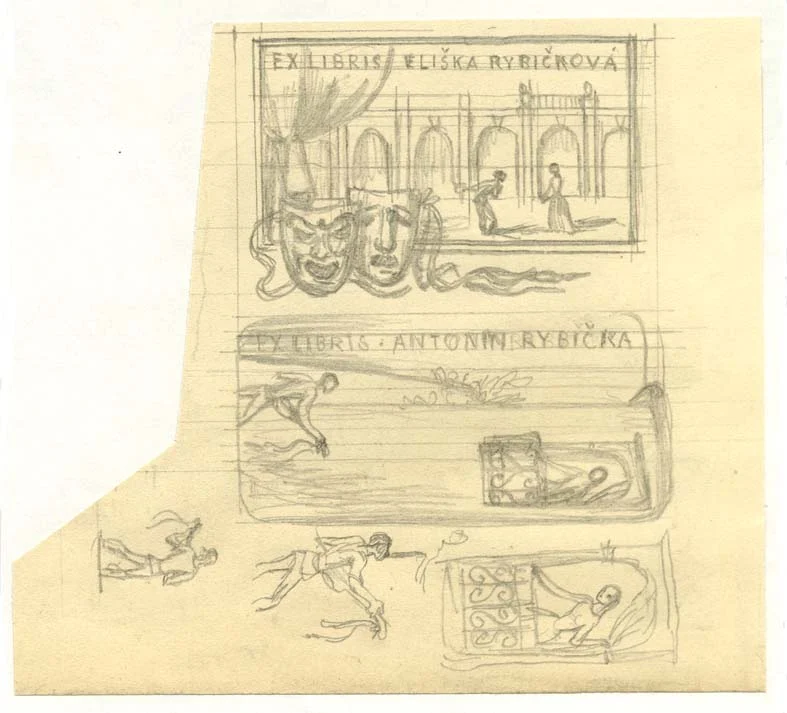 EX LIBRIS ELIŠKA RYBIČKOVÁ
EX LIBRIS · ANTONÍN RYBIČKA